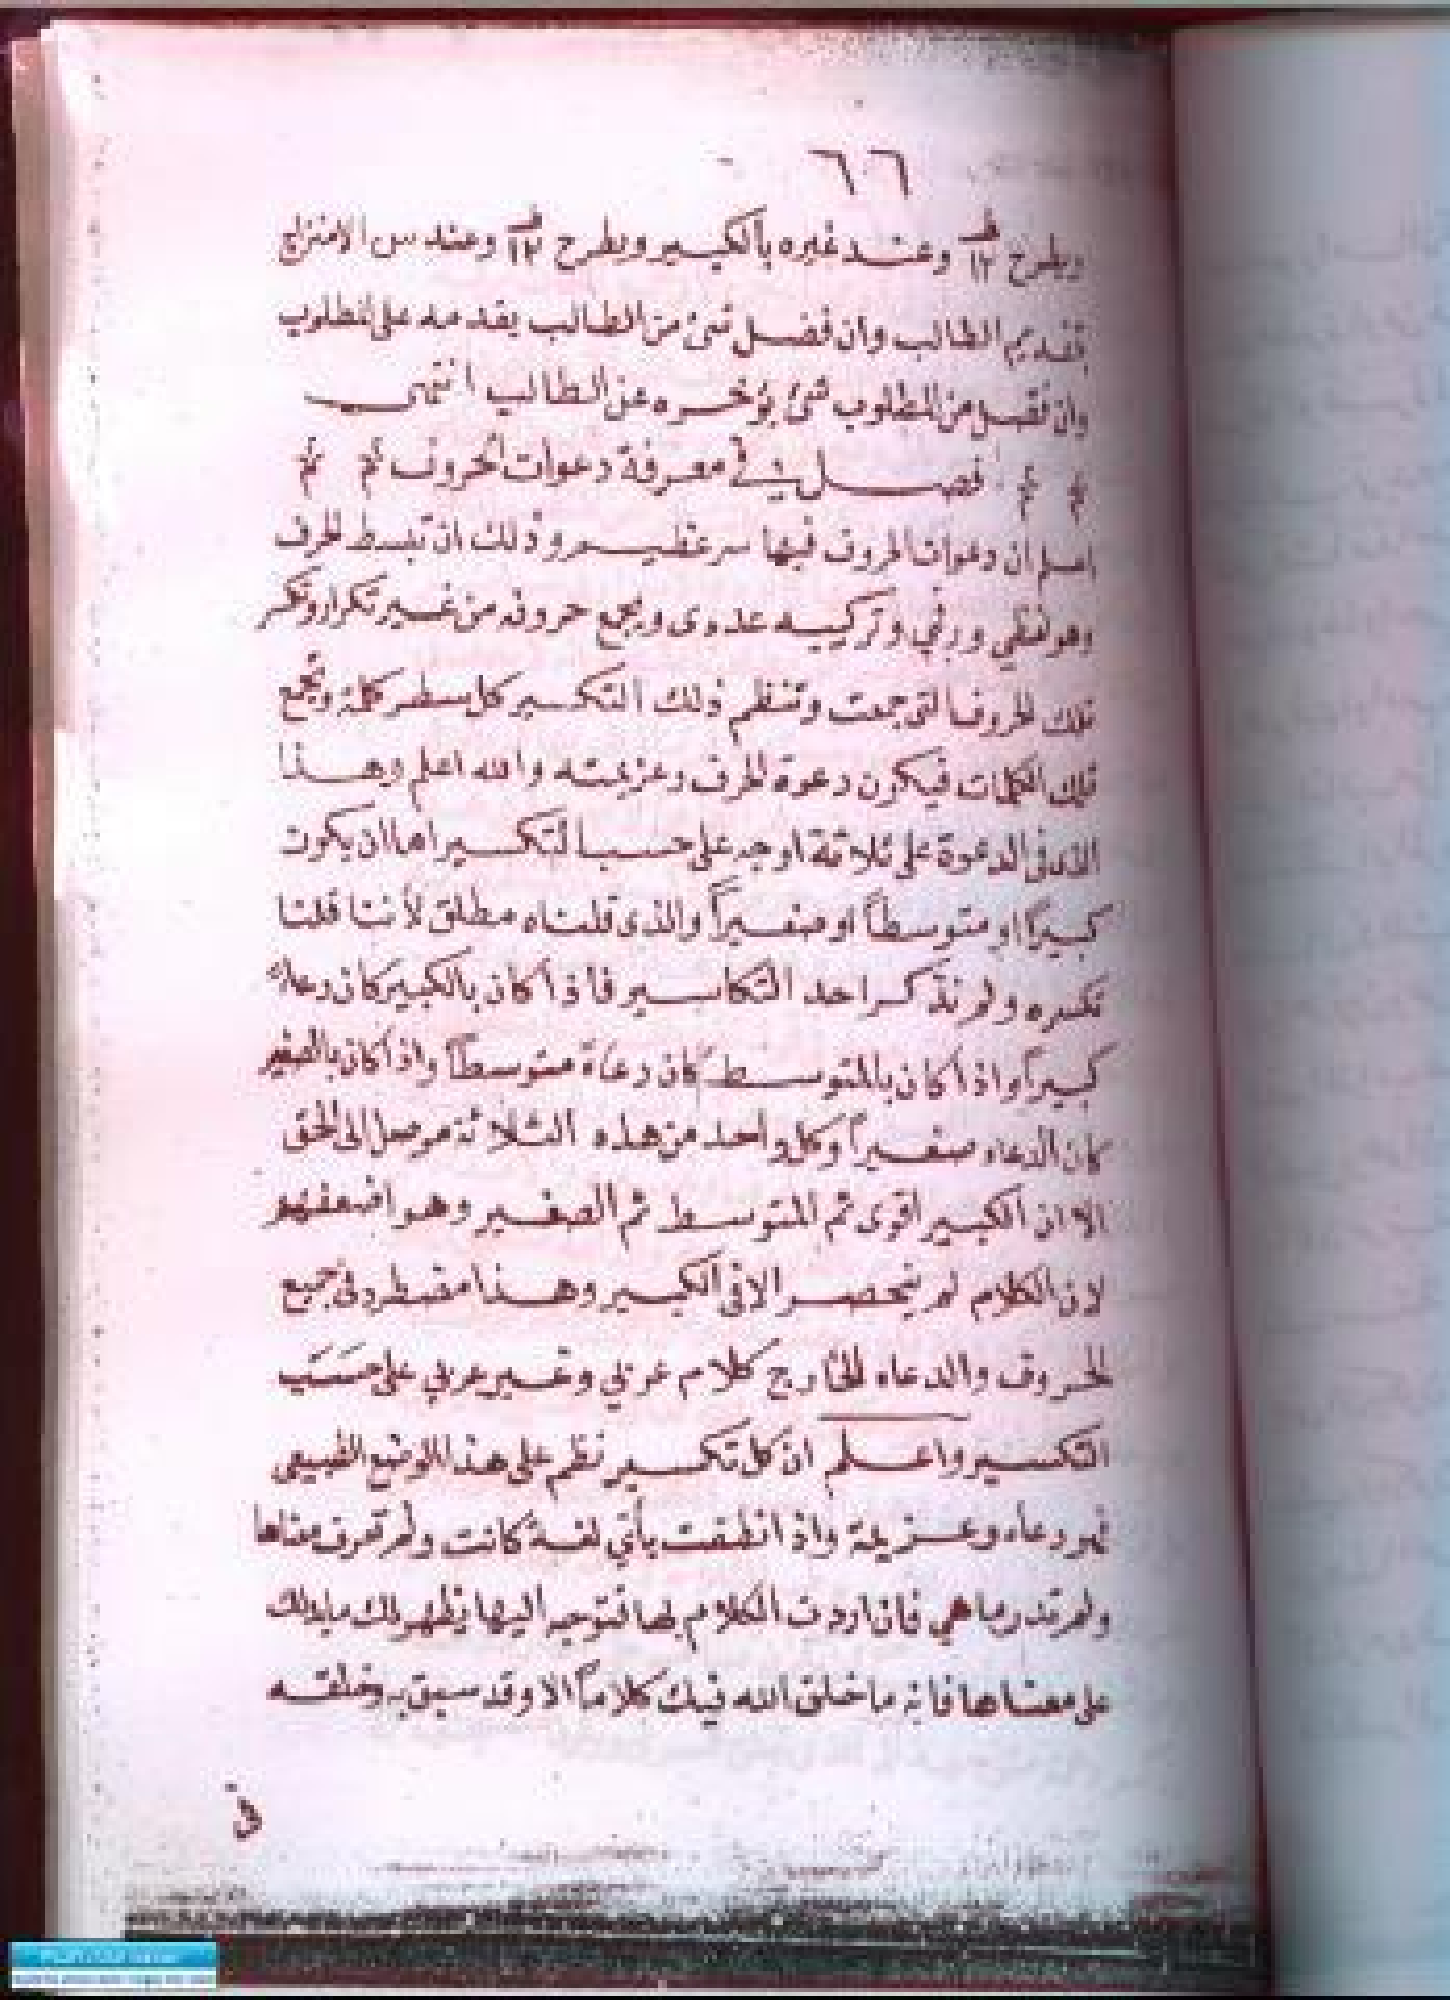 ٦٦
ويطرح ١٢ وعند غيره بالكبير ويطرح ١٢ وعند س الامتزاج
تقديم الطالب وان فضل شئ من الطالب يقدمه على المطلوب
وان فضل من المطلوب شئ يؤخره عن الطالب انتهى
فصل في معرفة دعوات الحروف
اعلم ان دعوات الحروف فيها سر عظيم وذلك ان تبسط الحرف
وهو لفظي ورقمي وتركيبه عددى ويجمع حروفه من غير تكرار وتكسر
تلك الحروف التى جمعت وتنظم ذلك التكسير كل سطر كلمة وتجمع
تلك الكلمات فيكون دعوة الحرف وعزيمته والله اعلم وهذا
الذى فى الدعوة على ثلاثة اوجه على حسب التكسير اما ان يكون
كبيراً او متوسطاً او صغيراً والذى قلناه مطلق لأننا قلنا
تكسره ولم نذكر احد التكاسير فأذا كان بالكبير كان دعاء
كبيراً واذا كان بالمتوسط كان دعاء متوسطاً واذا كان بالصغير
كان الدعاء صغيراً وكل واحد من هذه الثلاثة موصل الى الحق
الا ان الكبير اقوى ثم المتوسط ثم الصغير وهو اضعفهم
لان الكلام لم ينحصر الا فى الكبير وهذا مضطرد فى جميع
الحروف والدعاء الخارج كلام عربي وغير عربي على حسب
التكسير واعلم ان كل تكسير نظم على هذا الوضع الطبيعى
فهو دعاء وعزيمة واذا نطقت بأي لغة كانت ولم تعرف معناها
ولم تدر ما هي فان اردت الكلام بها فتوجه اليها يظهر لك ما يدلك
على معناها فانه ما خلق الله فيك كلاماً الا وقد سبق به وخلقه
فى